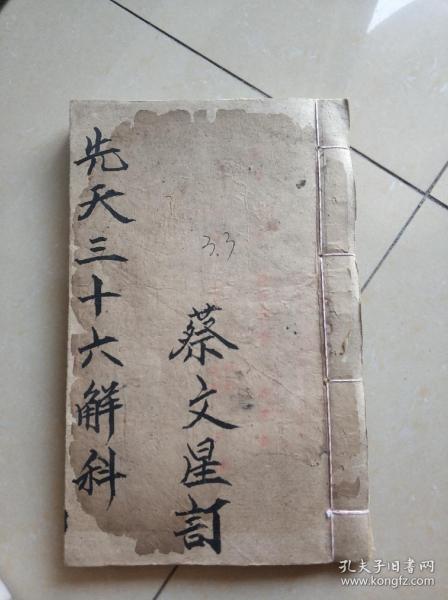 先天三十六解科
3.3
蔡文星訂
孔夫子旧书网
www.kongfz.com